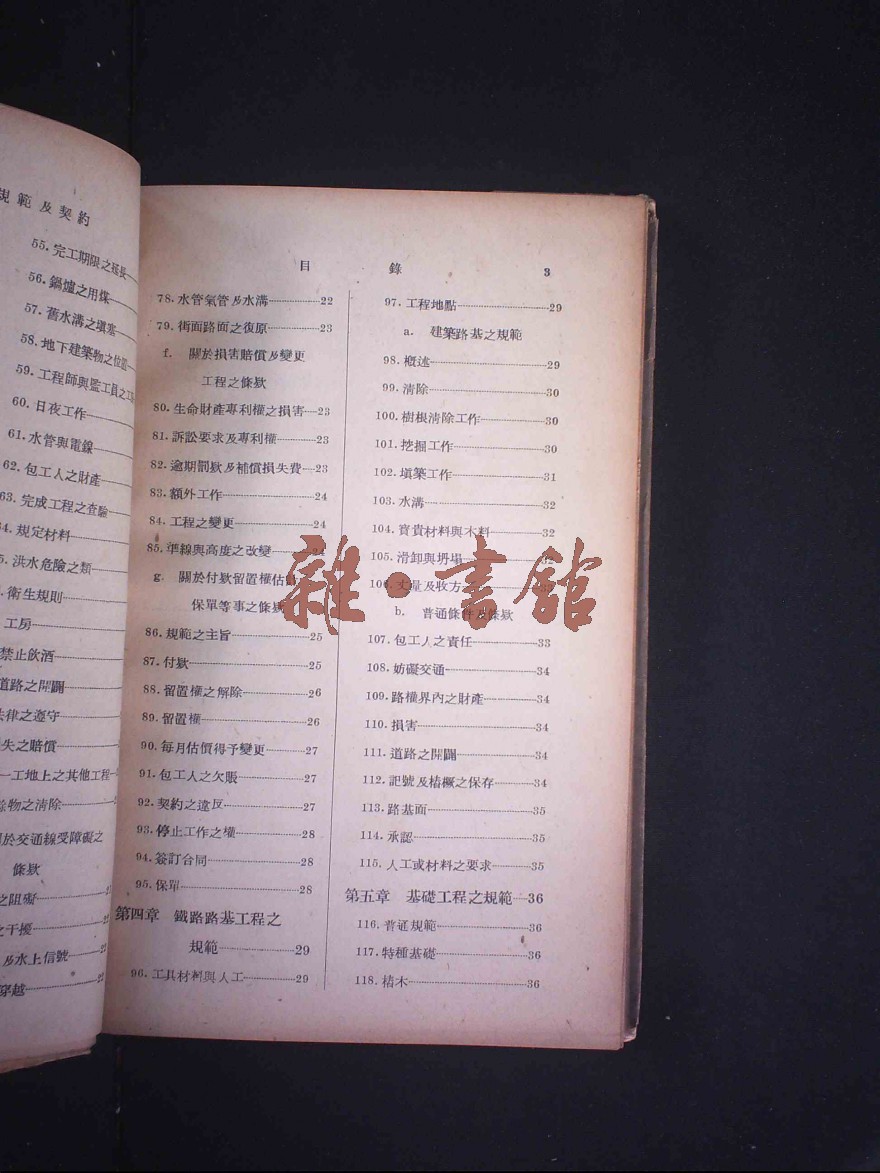 規範及契約
55. 完工期限之延長
56. 鍋爐之用煤
57. 舊水溝之塡塞
58. 地下建築物之位置
59. 工程師與監工員之工
60. 日夜工作
61. 水管與電線
62. 包工人之財產
63. 完成工程之查驗
4. 規定材料
5. 洪水危險之類
. 衛生規則
工房
禁止飲酒
道路之開闢
法律之遵守
失之賠償
一工地上之其他工程
餘物之清除
關於交通線受障礙之
條欵
之阻礙
之干擾
及水上信號
穿越
目 錄 3
78. 水管氣管及水溝 22
79. 街面路面之復原 23
f. 關於損害賠償及變更
工程之條欵
80. 生命財產專利權之損害 23
81. 訴訟要求及專利權 23
82. 逾期罰欵及補償損失費 23
83. 額外工作 24
84. 工程之變更 24
85. 準線與高度之改變 24
g. 關於付欵留置權估
保單等事之條欵
86. 規範之主旨 25
87. 付欵 25
88. 留置權之解除 26
89. 留置權 26
90. 每月估價得予變更 27
91. 包工人之欠賬 27
92. 契約之違反 27
93. 停止工作之權 28
94. 簽訂合同 28
95. 保單 28
第四章 鐵路路基工程之
規範 29
96. 工具材料與人工 29
97. 工程地點 29
a. 建築路基之規範
98. 概述 29
99. 清除 30
100. 樹根清除工作 30
101. 挖掘工作 30
102. 塡築工作 31
103. 水溝 32
104. 寶貴材料與木料 32
105. 滑卸與坍塌 32
106. 丈量及收方
b. 普通條件及條欵
107. 包工人之責任 33
108. 妨礙交通 34
109. 路權界內之財產 34
110. 損害 34
111. 道路之開闢 34
112. 記號及樁橛之保存 34
113. 路基面 35
114. 承認 35
115. 人工或材料之要求 35
第五章 基礎工程之規範 36
116. 普通規範 36
117. 特種基礎 36
118. 樁木 36
雜·書館